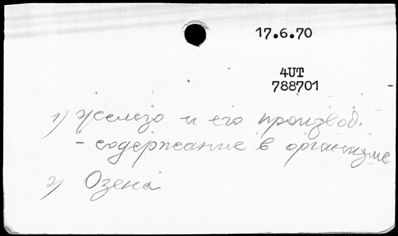 17.6.70
4UT
788701
1) Железо и его производ.
- содержание в организме
2) Озена